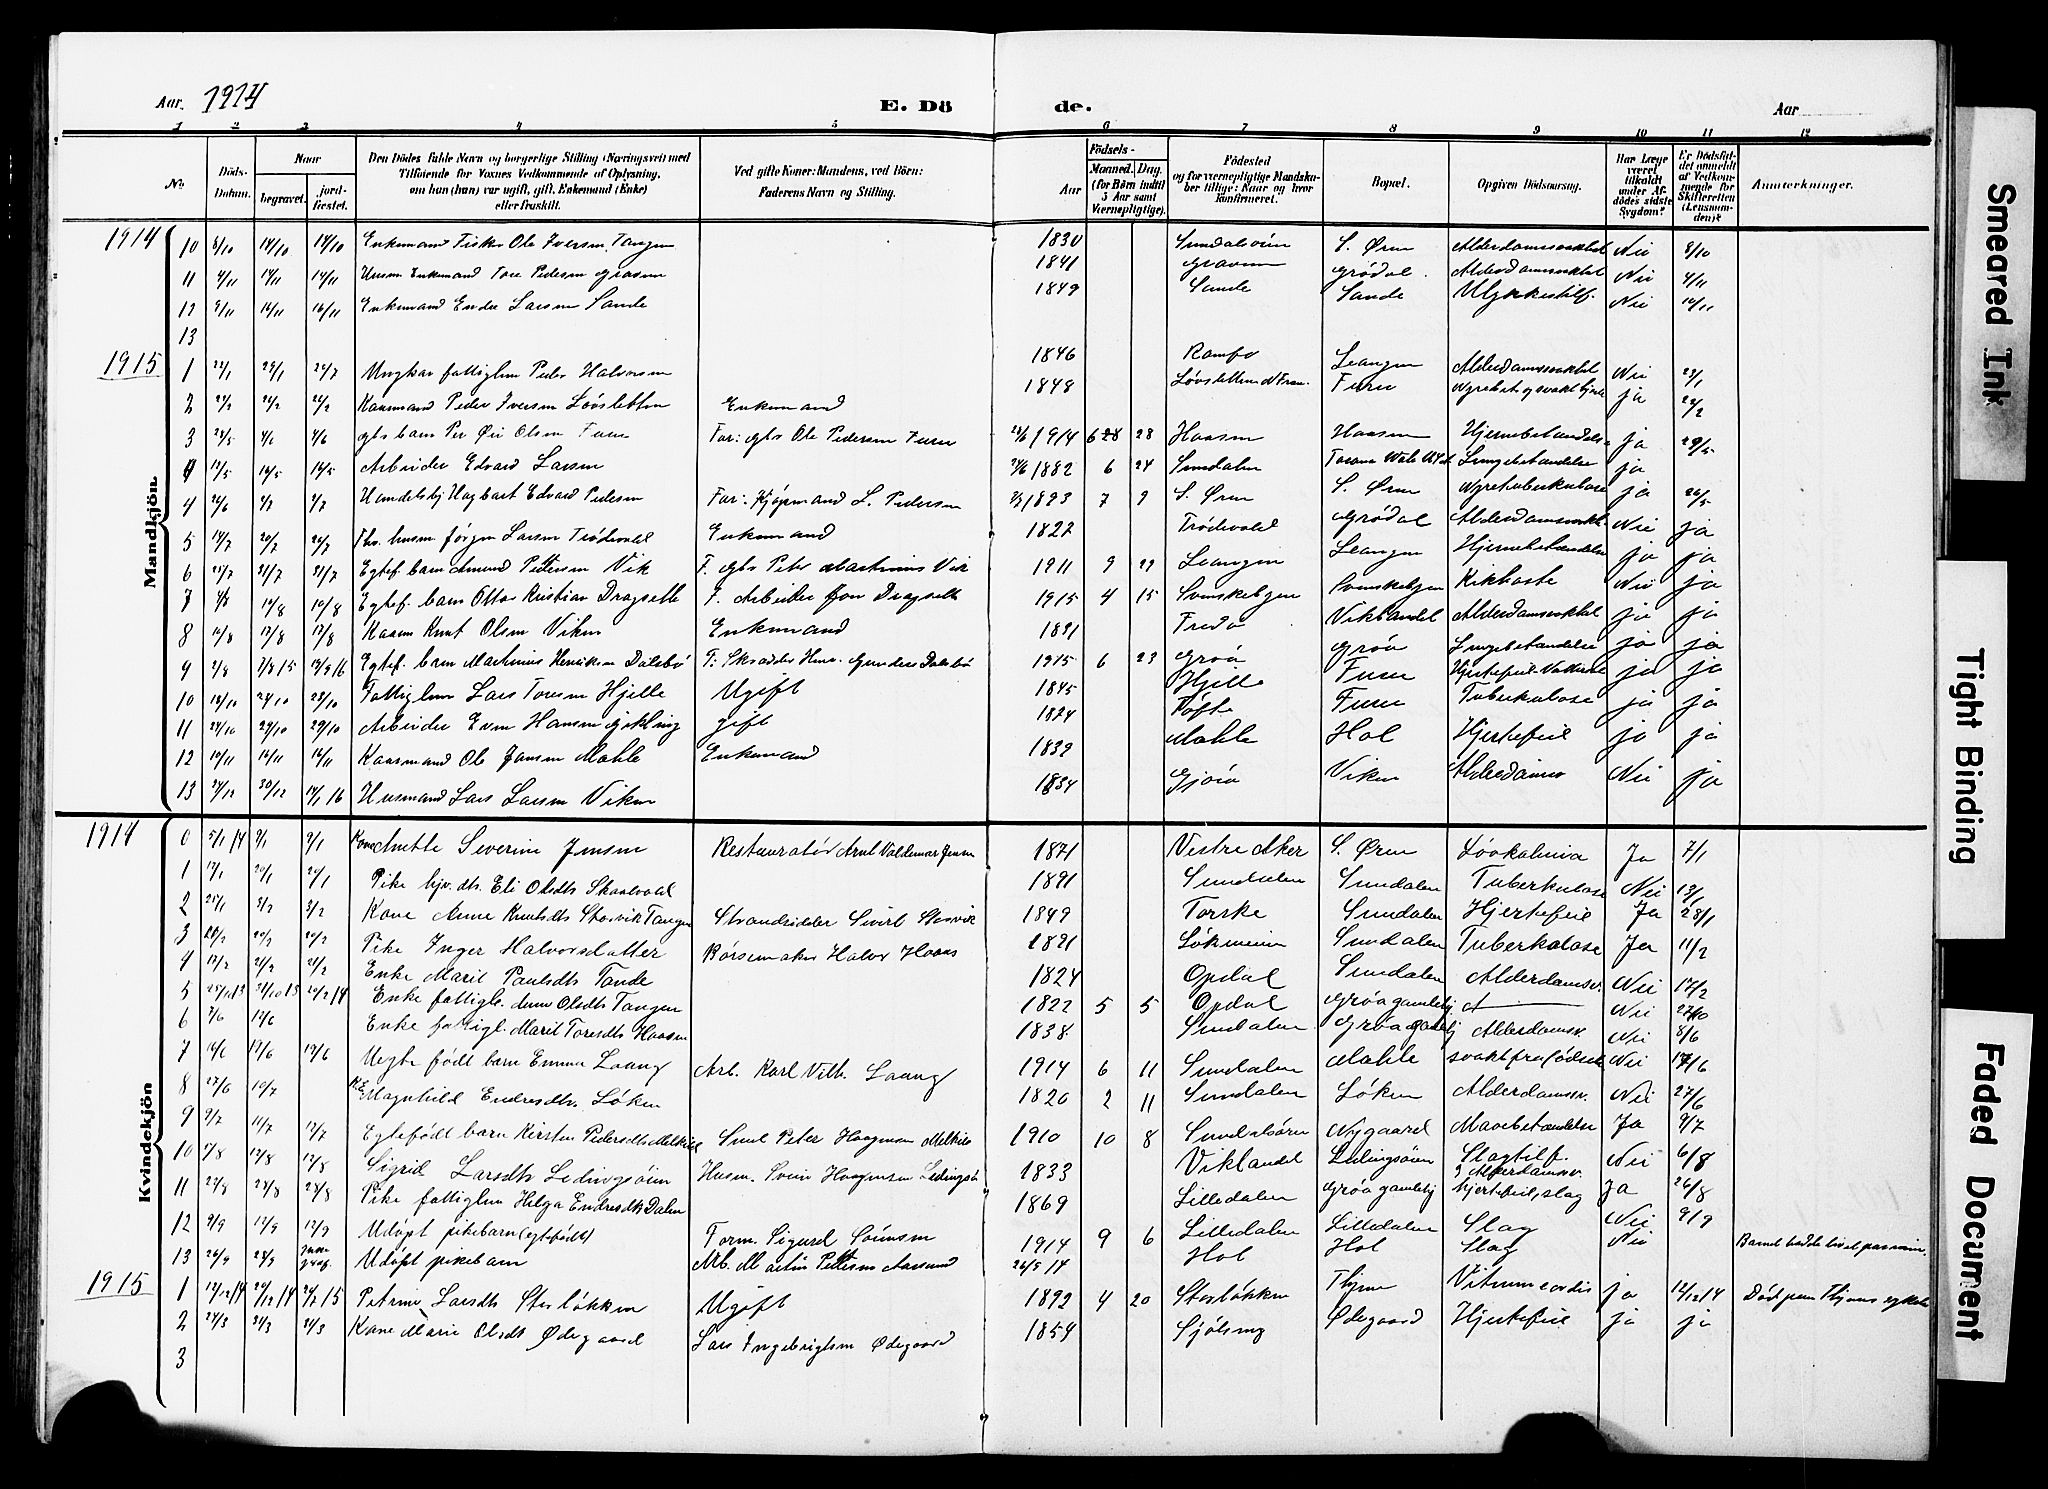 Aar. 1914 E. Dö de. Aar
1 2 3 4 5 6 7 8 9 10 11 12
No. Döds-Datum. Naar begravet. jordfæstet. Den Dödes fulde Navn og borgerlige Stilling (Næringsvei) med Tilföiende for Voxnes Vedkommende af Oplysning, om han (hun) var ugift, gift, Enkemand (Enke) eller fraskilt. Ved gifte Koner: Mandens, ved Börn: Faderens Navn og Stilling. Aar Födsels- Maaned. Dag. (for Börn indtil 5 Aar samt Værnepligtige). Födested og for værnepligtige Mandskaber tillige: Naar og hvor konfirmeret. Bopæl. Opgiven Dödsaarsag. Har Læge været tilkaldt under Afdödes sidste Sygdom? Er Dödsfaldet anmeldt af Vedkommende for Skifteretten (Lensmanden)? Anmærkninger.
Mandkjön.
1914 10 8/10 14/10 14/10 Enkemand Fisker Ole Iversen Tangen 1830 Sundalsøren S. Øren Alderdomssvakhet Nei 8/10
11 4/11 14/11 14/11 Husm. Enkemand Tore Pedersen 1841 Grødal. Alderdomssvakhet Nei 4/11
12 9/11 14/11 14/11 Enkemand Endre Larsen Sande 1849 Sande Sande Ulykkestilf. Nei 14/11
13
1915 1 22/1 29/1 Ungkar fattiglem Peder Halvorsen 1846 Leangen Alderdomssvakhet Nei 23/1
2 Kaarmand Peder Iversen Løvsletten Enkemand 1848 Løvsletten Furu ja
3 4/6 4/6 gbs barn Per Øri Olsen Furu Far: gbs Ole Pedersen Furu 1914 28 Haasen Haasen ja 29/5
4 12/5 14/5 14/5 Arbeider Edvard Larsen 1882 6 24 Sundalen Lungebetændelse ja
4 2/7 2/7 Handelsbj Hagbart Edvard Pedersen Far: Kjøpmand L. Pedersen 1893 7 9 S. Øren S. Øren Nyretuberkulose ja 26/5
5 14/7 20/7 20/7 Fhv. husm. Jørgen Larsen Trødevold Enkemand 1822 Trødevold Grødal Alderdomssvakh. Nei ja
6 21/7 21/7 Egtef. barn Amund Pettersen Vik F. gbs Peter Martinius Vik 1911 9 29 Leangen Leangen Hjernebetændelse ja ja
7 10/8 10/8 Egtef. barn Ottar Kristian Dragsette F. Arbeider Jon Dragsette 1915 4 15 Svinskebjen Svinskebjen Kikhoste Nei ja
8 12/8 12/8 Kaarm Knut Olsen Viken Enkemand 1831 Fredø Viklandet Alderdomssvakhet ja ja
9 2/8 7/8 15 Egtef. barn Martinius Henriksen Dalebø F: Skrædder Henr. Gunders Dalebø 1915 6 23 Grøa Grøa Lungebetændelse ja ja
10 23/10 Fattiglem Lars Toresen Hjelle Ugift 1845 Hjelle Furu Hjertefeil ja ja
11 24/10 29/10 29/10 Arbeider Even Hansen gift 1874 Tofte Furu Tuberkulose ja ja
12 10/11 14/11 14/11 Kaarmand Ole Jonsen Mahle Enkemand 1839 Mahle Hol Hjertefeil ja ja
13 24/12 30/12 14/1 16 Husmand Lars Larsen Viken 1834 Gjøra Viken Alderdomsv Nei ja
Kvindekjön
1914 0 5/1 14 9/1 9/1 Kone Anette Severine Jensen Restauratør Arnt Valdemar Jensen 1871 Vestre Aker S. Øren Ja 7/1
1 17/1 20/1 20/1 Pike hjv. dtr. Eli Olsdtr Skaalvold 1891 Sundalen Sundalen Tuberkulose Nei 19/1
2 25/1 3/2 3/2 Kone Anne Knutsdtr Storvik Tangen Strandsidder Sivert Storvik 1849 Torske Sundalen Hjertefeil Ja 28/1
3 20/2 20/2 Pike Inger Halvorsdatter Børsemaker Halvor Haaas 1891 Løkmeien Sundalen Tuberkulose Ja 11/2
4 12/2 21/2 21/2 Enke Marit Paulsdtr Tande 1824 Opdal Sundalen Alderdomsv. Nei 17/2
5 31/10 13 20/2 14 Enke fattigl. Anne Olsdtr Tangen 1822 5 5 Opdal Grøa gamlehj Nei
6 7/6 12/6 Enke fattigl. Marit Toresdtr Haasen 1838 Sundalen Grøa gamlehj Alderdomsv. Nei 8/6
7 16/6 19/6 19/6 Uegte født barn Emma Laang Arb. Karl Vilh. Laang 1914 6 11 Sundalen Mahle svakt fra fødsel Nei 17/6
8 27/6 10/7 Magnhild Endresdtr. Løken 1820 2 11 Sundalen Løken Alderdomsv. Nei 27/6
9 9/7 11/7 12/7 Egtefødt barn Kirsten Pedersdtr Melkild Smed Peter Haagensen Melkild 1910 10 8 Sundalsøren Nygaard Mavebetændelse Ja 9/7
10 5/8 12/8 12/8 Sigrid Larsdtr Ledingsøien Husm. Svein Haagensen Ledingsø 1833 Viklandet Ledingsøien Slagtilf. Nei 6/8
11 22/8 28/8 28/8 Pike fattiglem Helga Endresdtr Dalen 1869 Lilledalen Grøa gamlehj Alderdomsv. hjertefeil, slag Ja 26/8
12 9/9 12/9 12/9 Udøpt pikebarn (egtefødt) Form. Sigurd 1914 9 6 Lilledalen Lilledalen Slag Nei 9/9
13 26/9 28/9 Udøpt pikebarn Arb. Martin Pettersen Aarsund 26/9 14 Hol Hol Slag Nei Barnet hadde livet
1915 1 12/12 14 20/12 14 Petrine Larsdtr Storløkken Ugift 1892 4 20 Storløkken Vitium cordis ja 12/12 14 Død paa
2 21/3 24/3 24/3 Kone Marie Olsdt Ødegaard Lars Ingebrigtsen Ødegaard 1854 Ødegaard Hjertefeil ja ja
3
Smeared Ink
Tight Binding
Faded Document